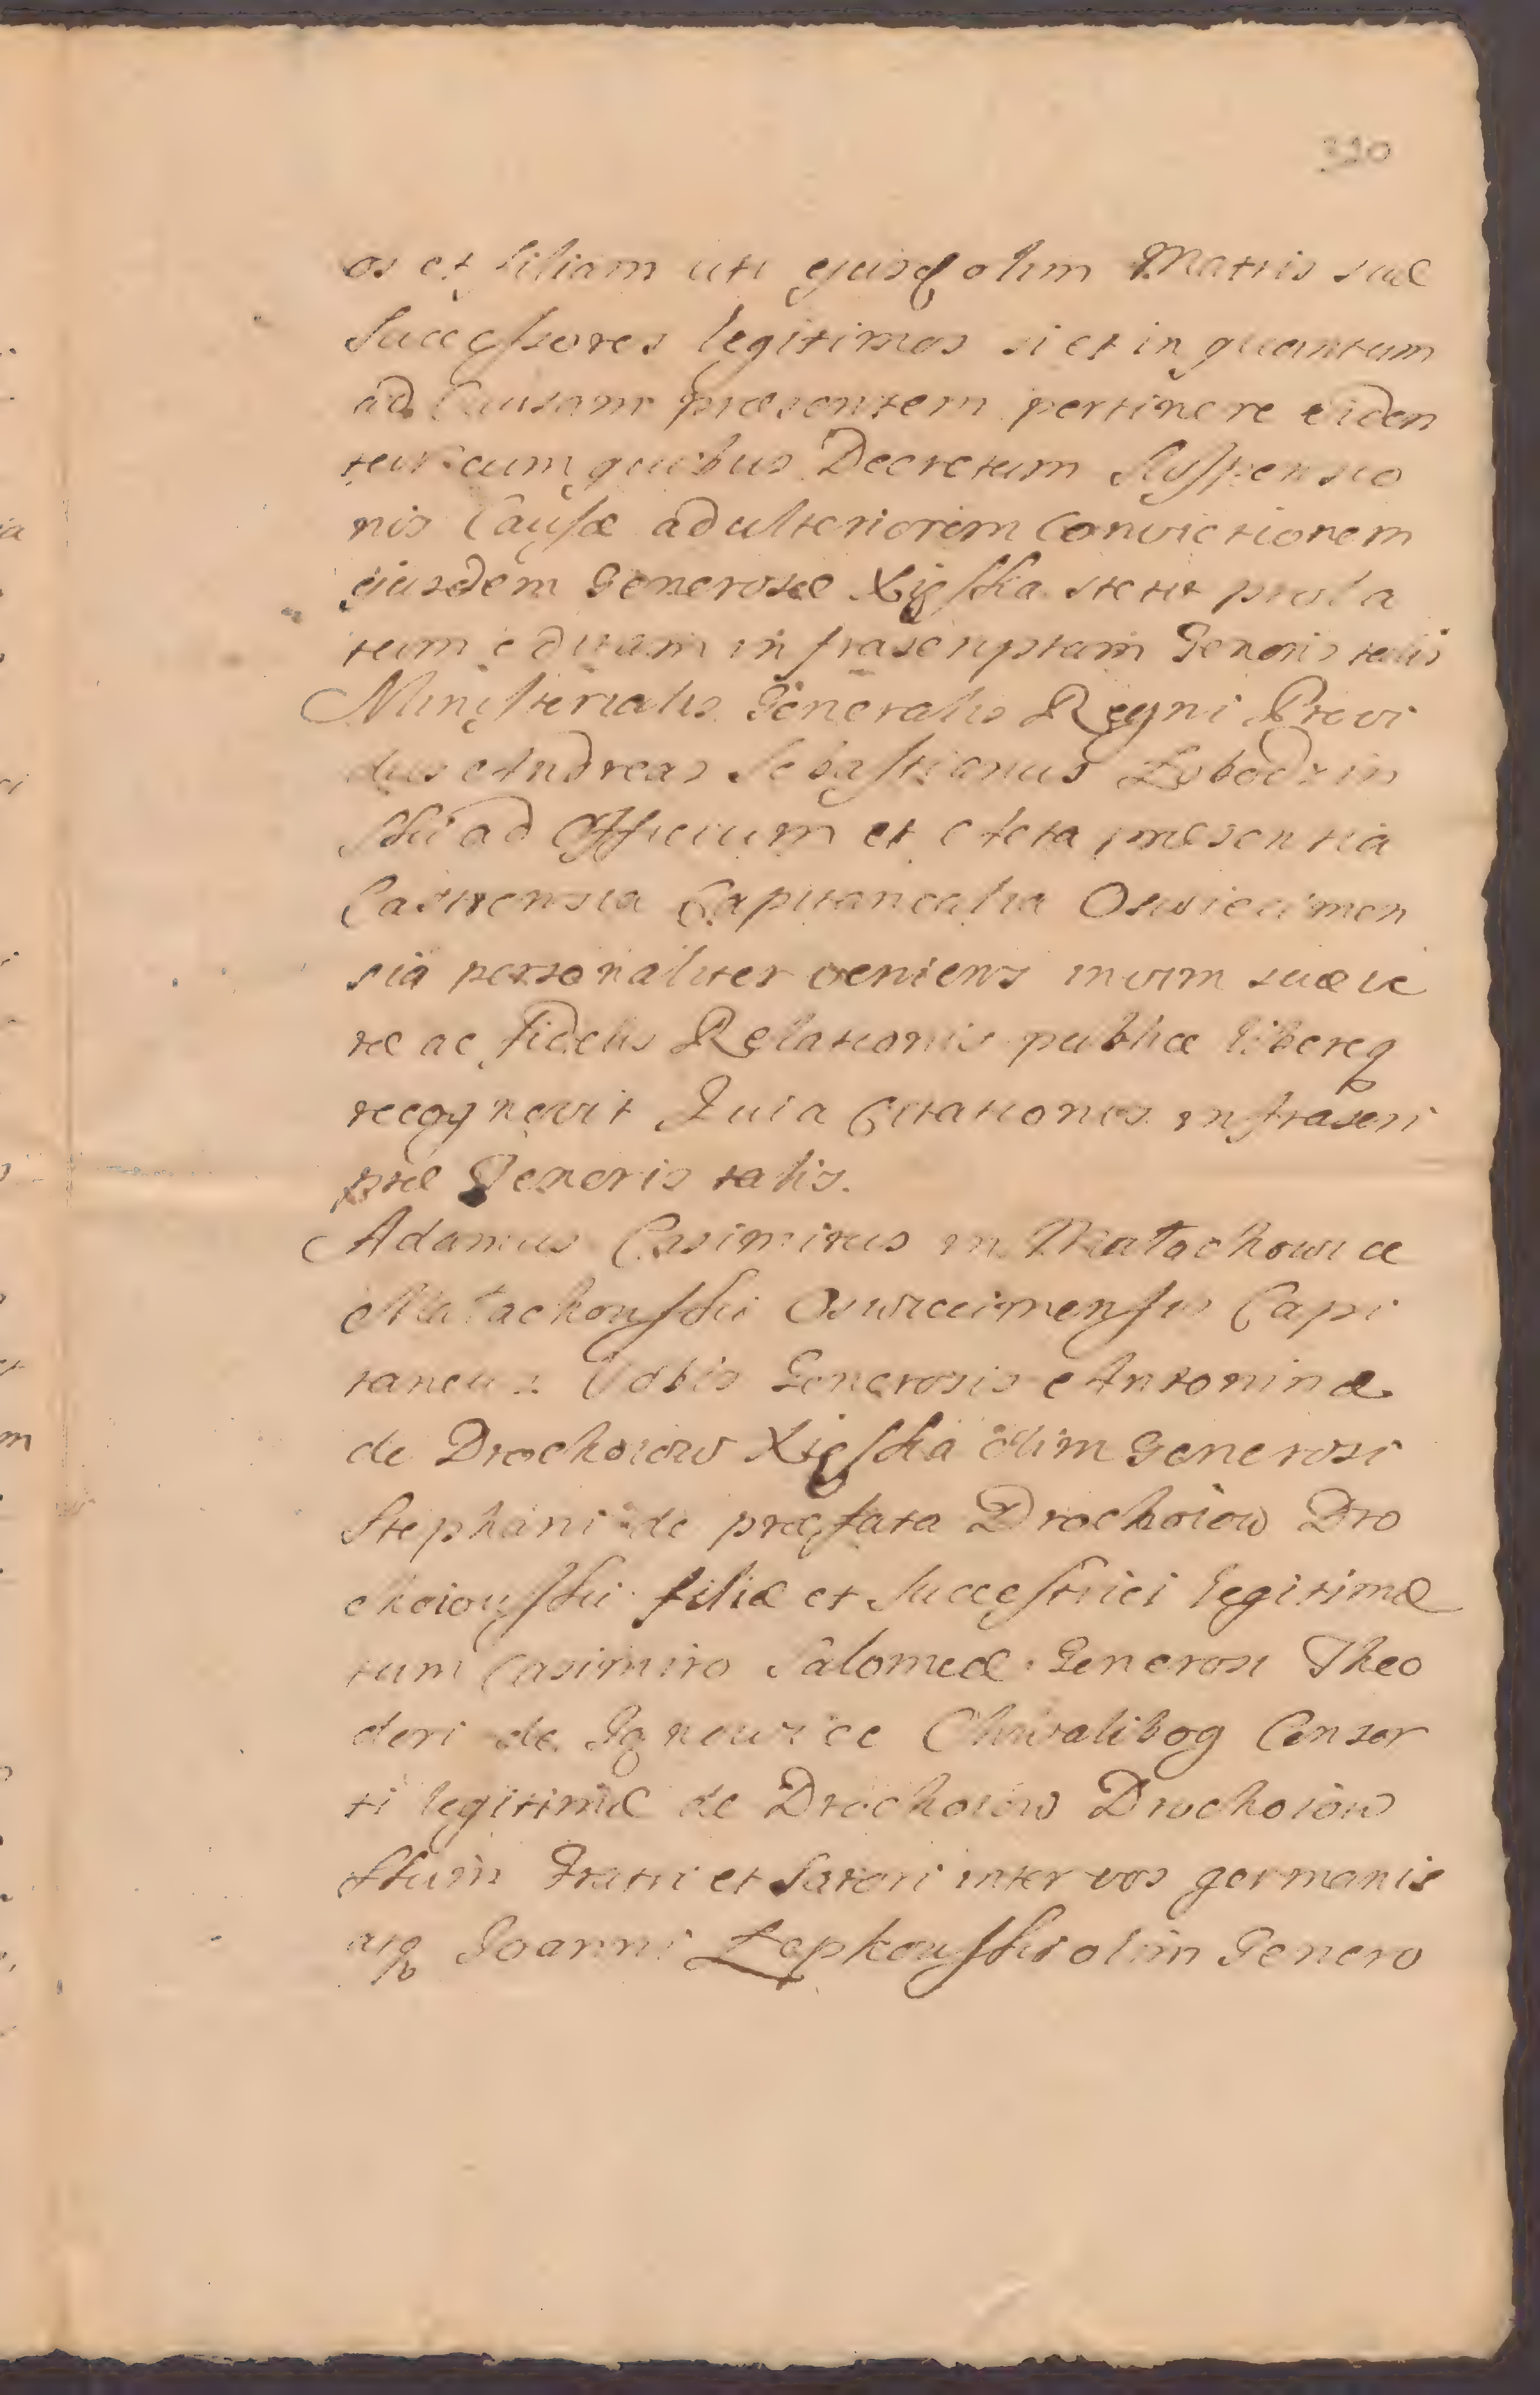 330
os et filiam uti ejusq olim Matris suæ
Successores legitimos si et in quantum
ad Causam præsentem pertinere viden
tur cum quibus Decretum Suspensio
nis Causæ ad ulteriorem Convictionem
ejusdem Generosæ Xięska stetit prola
tum infrascriptam Generis talis
Ministerialis Generalis Regni Provi
dus Andreas Sebastianus Lobodzin
ski ad Officium et Acta præsentia
Castrensia Capitanealia Oswiecimen
sia personaliter veniens in vim suæ ve
ræ ac fidelis Relationis publicæ libereq
recognovit Quia Citationis infrascri
ptæ Tenoris talis.
Adamus Casimirus in Małachowice
Małachowski Oswiecimensis Capi
taneus Vobis Generosis Antoninæ
de Drochoiow Xięska olim Generosi
Stephani de præfata Drochoiow Dro
choiowski filiæ et Successtrici legitimæ
tum Casimiro Salomeæ Generosi Theo
dori de Chwalibog Consor
ti legitimæ de Drochoiow Drochoiow
skim Fratri et Sorori inter vos germanis
atq Joanni Łępkowski olim Genero